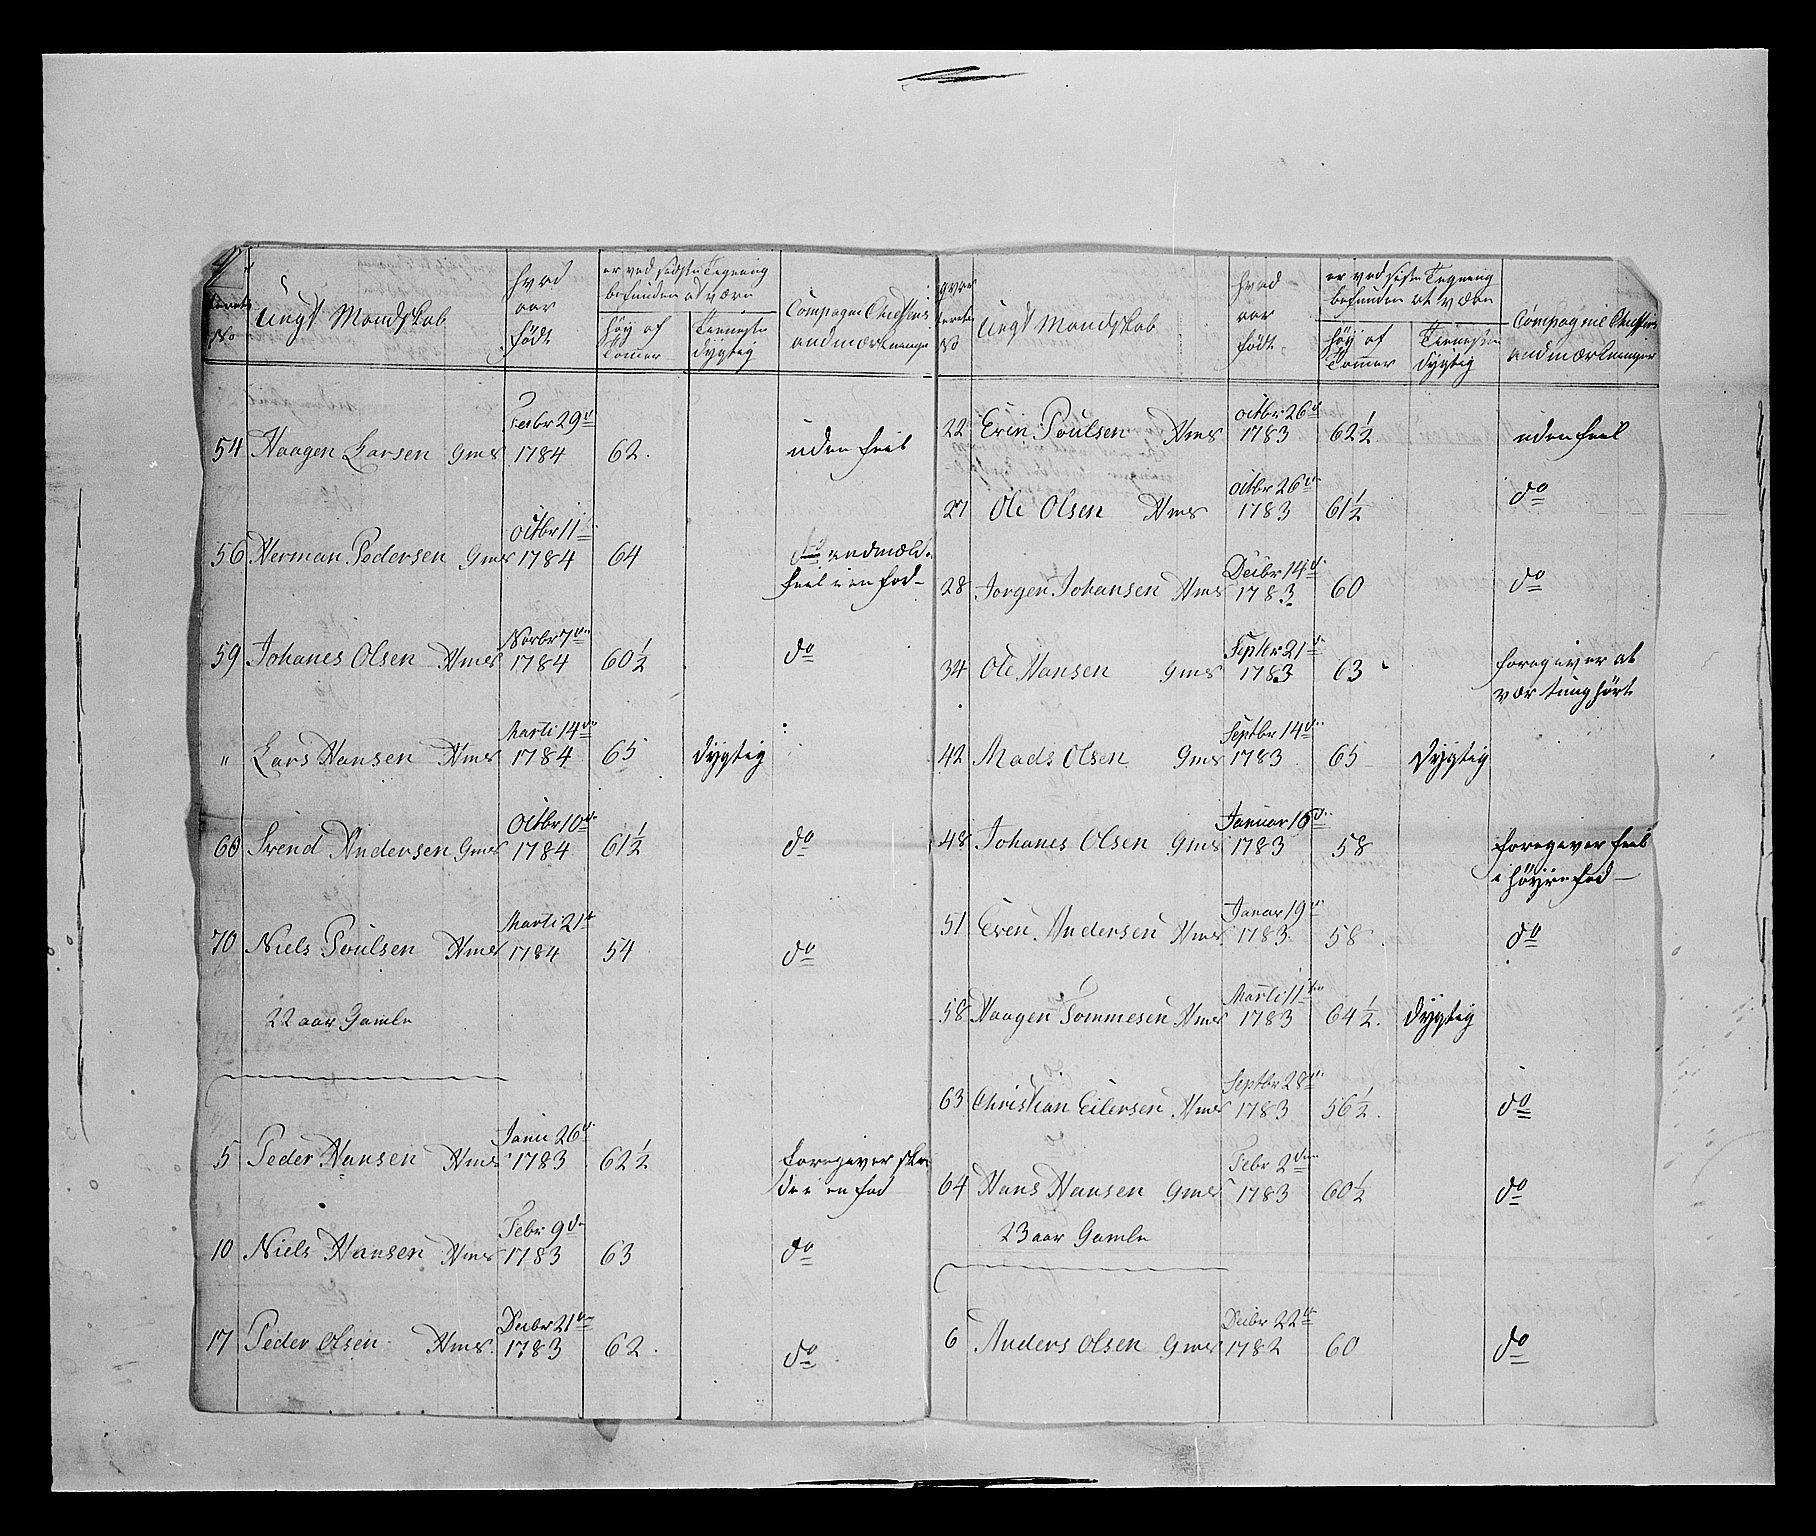 Ungt Mandskab
hvad aar født
er ved sidste Tegning befunden at være
høy af Tommer
Tieneste dygtig
Compagnie Cheffens andmærkninger
54 Haagen Larsen Gms Febr 29de 1784 62. uden feil
56 Herman Pedersen Gms Octbr 11te 1784 64 do andmæld.
feil i en fod
59 Johanes Olsen Hms Novbr 7de 1784 60½ do
" Lars Hansen Hms Marti 14de 1784 65 dygtig
60 Svend Andersen Gms Octbr 10de 1784 61½ do
70 Niels Poulsen Hms Marti 21de 1784 54 do
22 aar Gamle
5 Peder Hansen Hms Janu 26de 1783 62½ foregiver ska
de i en fod
10 Niels Hansen Hms Febr 9de 1783 63 do
17 Peder Olsen Hms. Decbr 21de 1783 62. do
hvor
No
Ungt Mandskab
hvad aar født
er ved siste Tegning befunden at være
høy af Tommer
Tieneste dygtig
Compagnie Cheffens andmærkninger
22 Erin Poulsen Hms Octbr 26de 1783 62½ uden feil
27 Ole Olsen Hms Octbr 26de 1783 61½ do
28 Jørgen Johansen Hms Decbr 14de 1783 60 do
34 Ole Hansen Gms Septbr 21de 1783 63 foregiver at
vær tunghørt
42 Mads Olsen Gms Septbr 14de 1783 65 dygtig
48 Johanes Olsen Gms Januar 16de 1783 58 foregiver feil
i høyre fod
51 Even Andersen Hms Januar 19de 1783 58. do
58 Haagen Tommesen Hms Marti 11te 1783 64½. dygtig
63 Christian Eilersen Hms Septbr 28de 1783 56½. do
64 Hans Hansen Gms Febr 2den 1783 60½ do
23 aar Gamle
6 Anders Olsen Gms Decbr 22de 1782 60 do